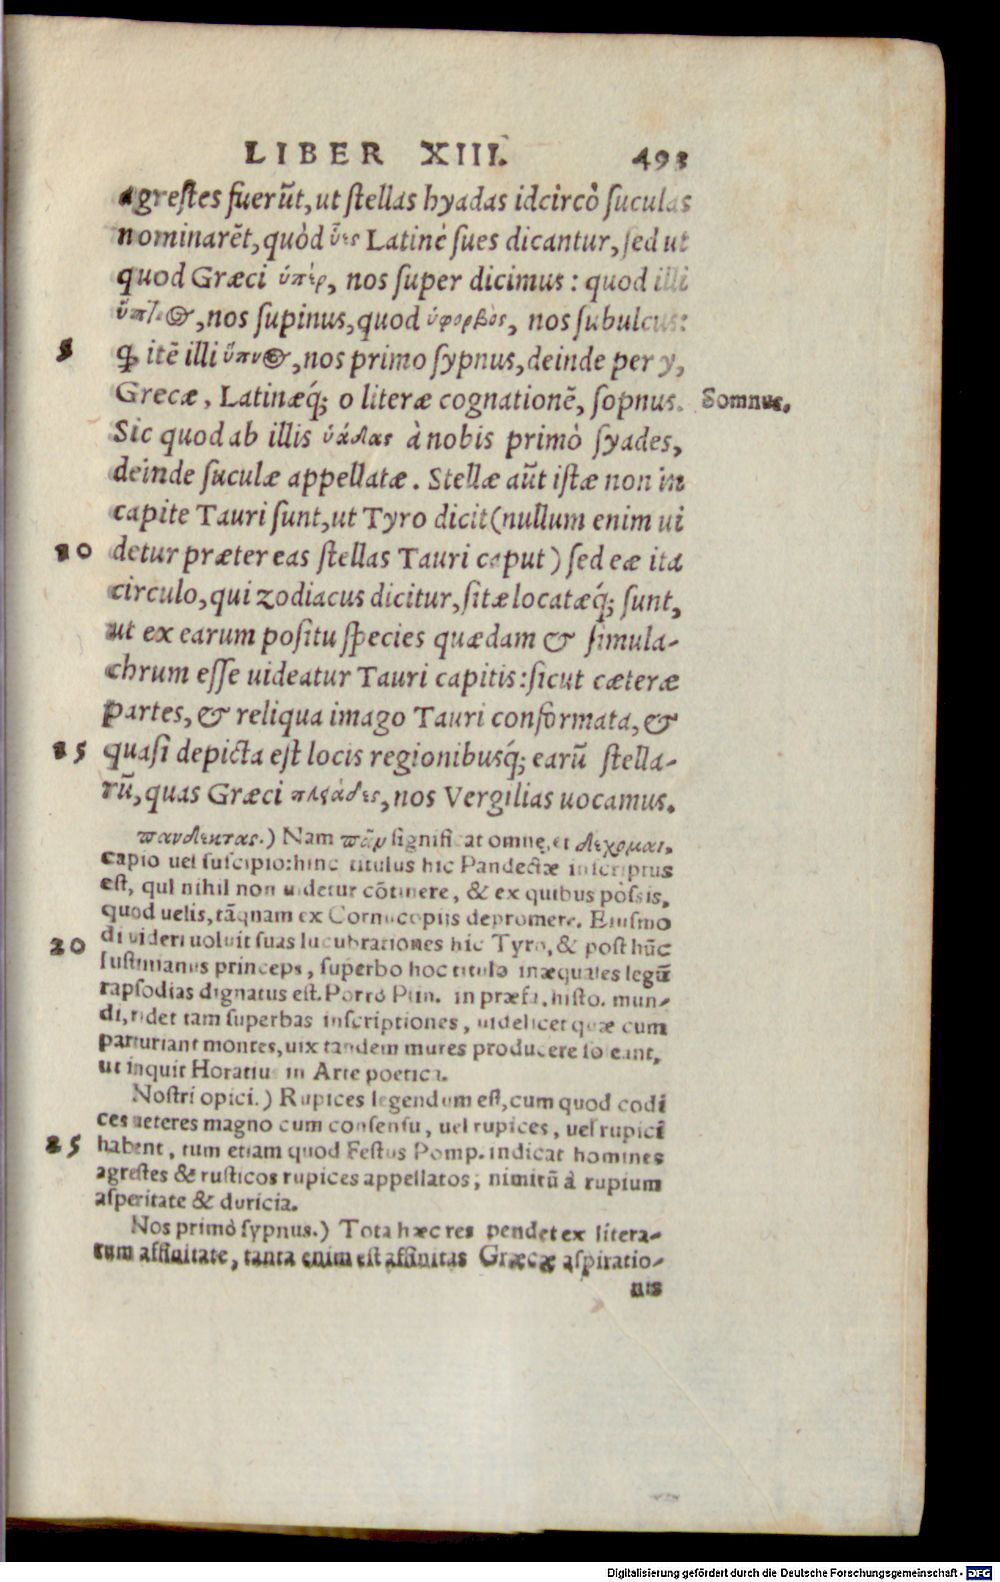 LIBER XIII. 493
agrestes fuerũt, ut stellas hyadas idcircò suculas
nominarẽt, quòd ὕες Latinè sues dicantur, sed ut
quod Græci ὑπὲρ, nos super dicimus: quod illi
ὕπτιος, nos supinus, quod ὑφορβὸς, nos subulcus:
5 ꝙ itẽ illi ὕπνος, nos primo sypnus, deinde per y,
Grecæ, Latinæq́; o literæ cognationẽ, sopnus. Somnus.
Sic quod ab illis ὑάδας à nobis primò syades,
deinde suculæ appellatæ. Stellæ aũt istæ non in
capite Tauri sunt, ut Tyro dicit (nullum enim ui
10 detur præter eas stellas Tauri caput) sed eæ ita
circulo, qui zodiacus dicitur, sitæ locatæq́; sunt,
ut ex earum positu species quædam & simula-
chrum esse uideatur Tauri capitis: sicut cæteræ
partes, & reliqua imago Tauri conformata, &
15 quasi depicta est locis regionibusq́; earũ stella-
rũ, quas Græci πλειάδες, nos Vergilias uocamus.
πανδέκτας.) Nam πᾶν significat omne, et δέχομαι,
capio uel suscipio: hinc titulus hic Pandectæ inscriptus
est, qui nihil non uidetur cõtinere, & ex quibus possis,
quod uelis, tãquam ex Cornucopiis depromere. Eiusmo
di uideri uoluit suas lucubrationes hic Tyro, & post hũc
20 Iustinianus princeps, superbo hoc titulo inæquales legũ
rapsodias dignatus est. Porrò Plin. in præfa. histo. mun-
di, ridet tam superbas inscriptiones, uidelicet quæ cum
parturiant montes, uix tandem mures producere soleant,
ut inquit Horatius in Arte poetica.
Nostri opici.) Rupices legendum est, cum quod codi
ces ueteres magno cum consensu, uel rupices, uel rupici
25 habent, tum etiam quod Festus Pomp. indicat homines
agrestes & rusticos rupices appellatos, nimirũ à rupium
asperitate & duricia.
Nos primò sypnus.) Tota hæc res pendet ex litera-
rum affinitate, tanta enim est affinitas Græcæ aspiratio-
nis
Digitalisierung gefördert durch die Deutsche Forschungsgemeinschaft - DFG